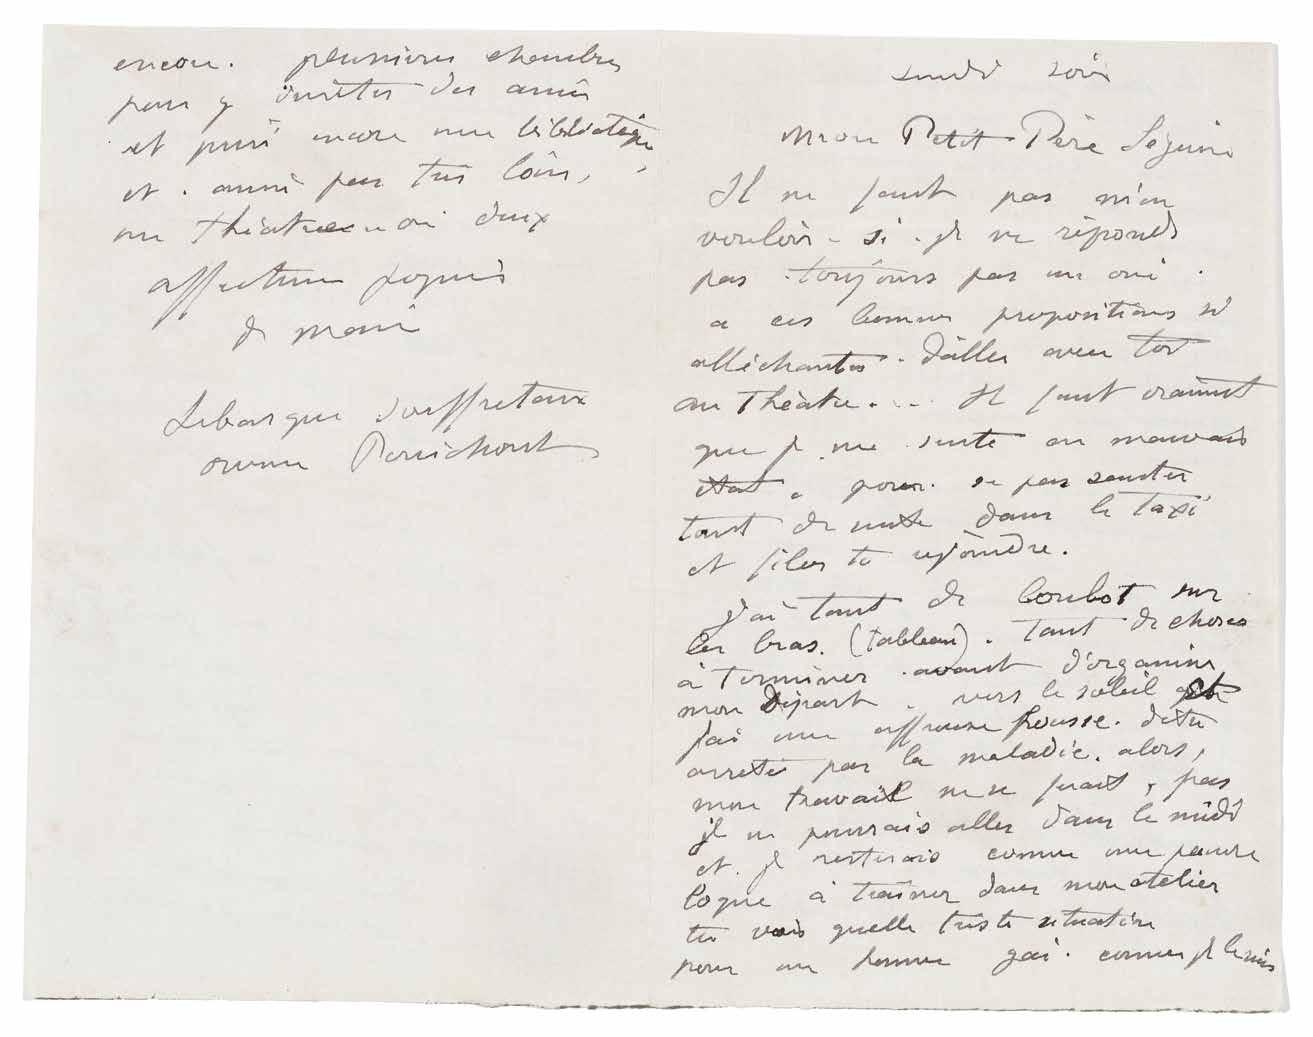 Lundi soir
Mon Petit Père Séguin
Il ne faut pas m'en
vouloir - si . je ne réponds
pas toujours pas un oui .
a ces bonnes propositions si
alléchantes . d'aller avec toi
au Théâtre.... Il faut vraiment
que je me sente en mauvais
état . pour . ne pas sauter
tout de suite dans le taxi
et filer te rejoindre.
J'ai tant de boulot sur
les bras. (tableau) . tant de choses
à terminer . avant d'organiser
mon départ . vers le soleil et
j'ai une affreuse frousse . detre
arreté par la maladie. alors,
mon travail ne se ferait , pas
je ne pourrais aller dans le midi
et . je resterais comme une pauvre
loque à traîner dans mon atelier
tu vois quelle triste situation
pour un homme gai . comme je le suis
encore . plusieurs chambres
pour y inviter des amis
et puis encore une bibliotèque
et . aussi pas très loin,
un théatre ou deux
affectueusement
de